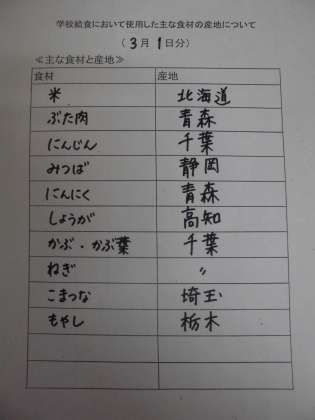 学校給食において使用した主な食材の産地について
(3月1日分)
≪主な食材と産地≫
食材 産地
米 北海道
ぶた肉 青森
にんじん 千葉
みつば 静岡
にんにく 青森
しょうが 高知
かぶ・かぶ葉 千葉
ねぎ 〃
こまつな 埼玉
もやし 栃木